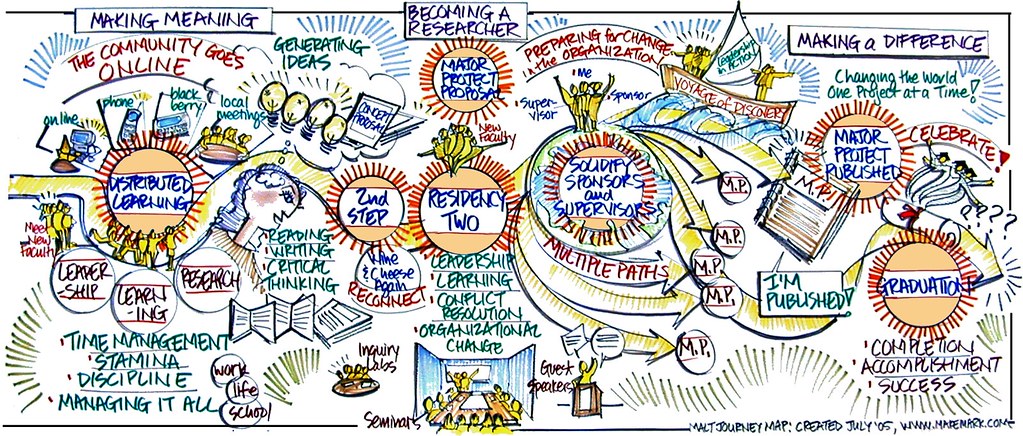 MAKING MEANING
THE COMMUNITY GOES
ONLINE
GENERATING
IDEAS
online
phone
black
berry
local
meetings
CONCEPT
PROPOSAL
DISTRIBUTED
LEARNING
Meet
New
Faculty
LEADER
-SHIP
LEARN
-ING
RESEARCH
• READING
• WRITING
• CRITICAL
THINKING
• TIME MANAGEMENT
• STAMINA
• DISCIPLINE
• MANAGING IT ALL
work
life
school
BECOMING A
RESEARCHER
MAJOR
PROJECT
PROPOSAL
New
Faculty
2nd
STEP
RESIDENCY
TWO
Wine
& Cheese
Again
RECONNECT
• LEADERSHIP
• LEARNING
• CONFLICT
RESOLUTION
• ORGANIZATIONAL
CHANGE
Inquiry
Labs
Seminars
Guest
Speakers
PREPARING for CHANGE
in the ORGANIZATION
Super-
visor
me
sponsor
SOLIDIFY
SPONSORS
and
SUPERVISORS
MULTIPLE PATHS
Leadership
in ACTION
VOYAGE of DISCOVERY
M.P.
M.P.
M.P.
M.P.
M.P.
M.P.
MAKING a DIFFERENCE
Changing the World
One Project at a Time!
MAJOR
PROJECT
PUBLISHED
CELEBRATE!
????
I'M
PUBLISHED!
GRADUATION
• COMPLETION
• ACCOMPLISHMENT
• SUCCESS
MALT JOURNEY MAP: CREATED JULY '05, WWW.MAKEMARK.COM